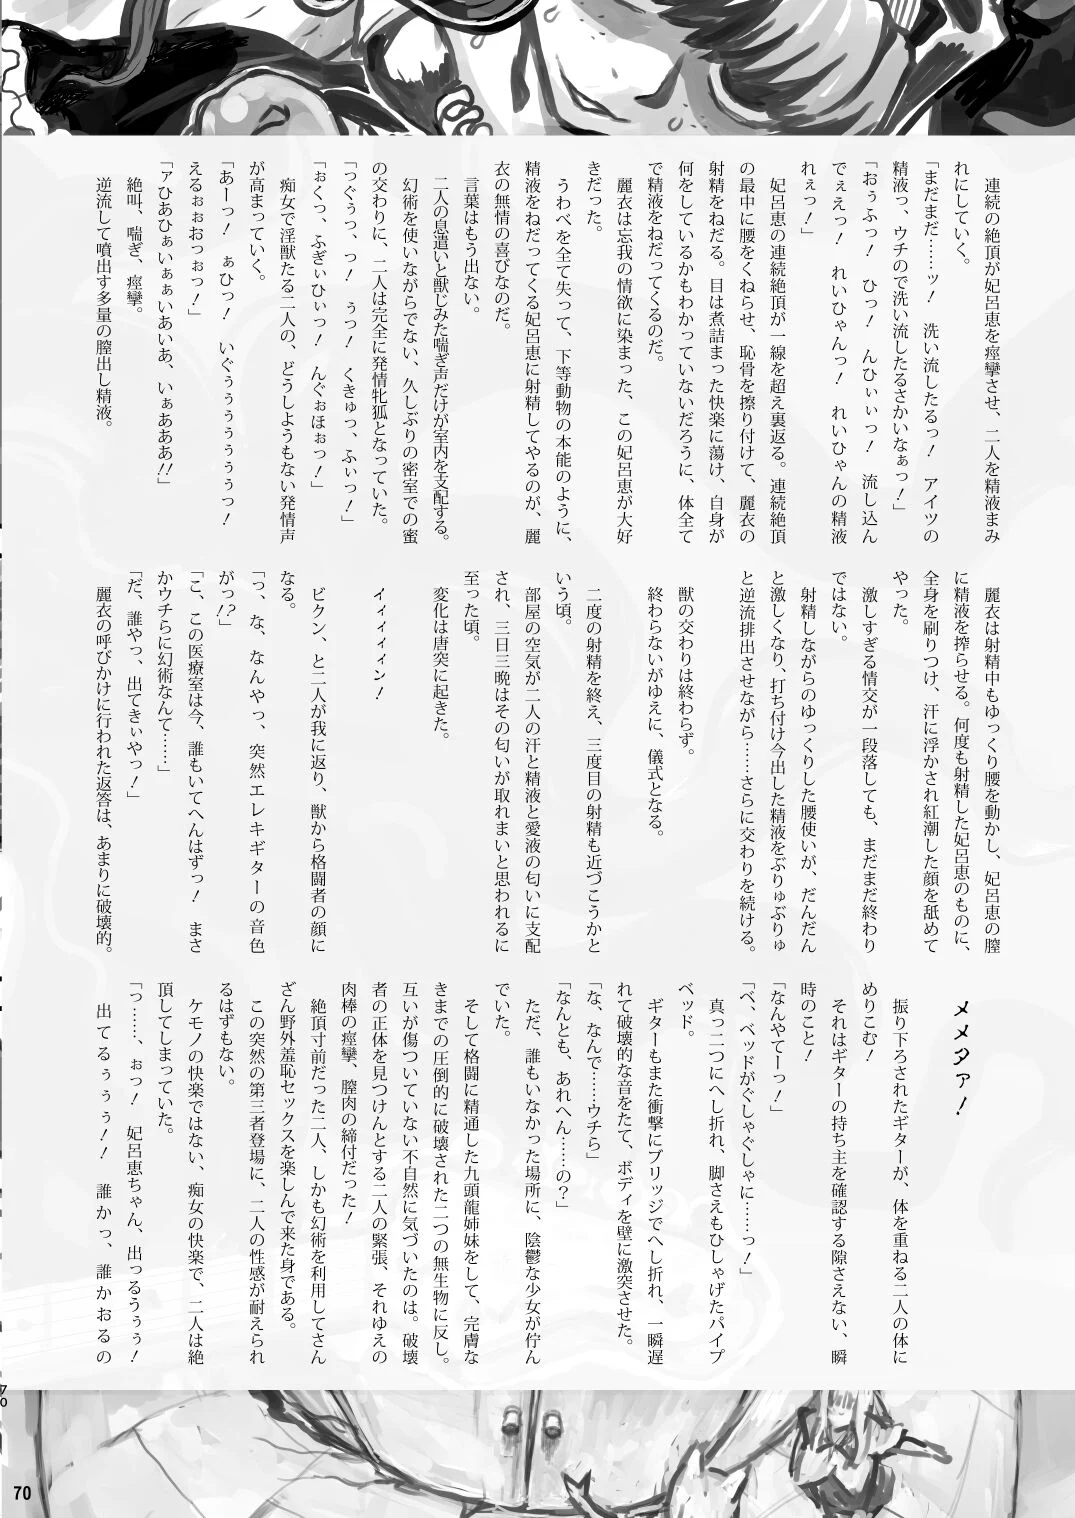 連続の絶頂が妃呂恵を痙攣させ、二人を精液まみ
れにしていく。
「まだまだ……ッ！　洗い流したるっ！　アイツの
精液っ、ウチので洗い流したるさかいなぁっ！」
「おぅふっ！　ひっ！　んひぃぃっ！　流し込ん
でぇえっ！　れいひゃんっ！　れいひゃんの精液
れぇっ！」
妃呂恵の連続絶頂が一線を超え裏返る。連続絶頂
の最中に腰をくねらせ、恥骨を擦り付けて、麗衣の
射精をねだる。目は煮詰まった快楽に蕩け、自身が
何をしているかもわかっていないだろうに、体全て
で精液をねだってくるのだ。
麗衣は忘我の情欲に染まった、この妃呂恵が大好
きだった。
うわべを全て失って、下等動物の本能のように、
精液をねだってくる妃呂恵に射精してやるのが、麗
衣の無情の喜びなのだ。
言葉はもう出ない。
二人の息遣いと獣じみた喘ぎ声だけが室内を支配する。
幻術を使いながらでない、久しぶりの密室での蜜
の交わりに、二人は完全に発情牝狐となっていた。
「つぐぅっ、っ！　ぅっ！　くきゅっ、ふぃっ！」
「ぉくっ、ふぎぃひぃっ！　んぐぉほぉっ！」
痴女で淫獣たる二人の、どうしようもない発情声
が高まっていく。
「あーっ！　ぁひっ！　いぐぅぅぅぅぅぅぅっ！
えるぉぉおおっぉっ！」
「ァひあひぁいぁぁいあいあ、いぁあああ!!」
絶叫、喘ぎ、痙攣。
逆流して噴出す多量の膣出し精液。
麗衣は射精中もゆっくり腰を動かし、妃呂恵の膣
に精液を搾らせる。何度も射精した妃呂恵のものに、
全身を刷りつけ、汗に浮かされ紅潮した顔を舐めて
やった。
激しすぎる情交が一段落しても、まだまだ終わり
ではない。
射精しながらのゆっくりした腰使いが、だんだん
と激しくなり、打ち付け今出した精液をぶりゅぶりゅ
と逆流排出させながら……さらに交わりを続ける。
獣の交わりは終わらず。
終わらないがゆえに、儀式となる。
二度の射精を終え、三度目の射精も近づこうかと
いう頃。
部屋の空気が二人の汗と精液と愛液の匂いに支配
され、三日三晩はその匂いが取れまいと思われるに
至った頃。
変化は唐突に起きた。
イィィィィン！
ビクン、と二人が我に返り、獣から格闘者の顔に
なる。
「っ、な、なんやっ、突然エレキギターの音色
がっ!?」
「こ、この医療室は今、誰もいてへんはずっ！　まさ
かウチらに幻術なんて……」
「だ、誰やっ、出てきぃやっ！」
麗衣の呼びかけに行われた返答は、あまりに破壊的。
メメタァ！
振り下ろされたギターが、体を重ねる二人の体に
めりこむ！
それはギターの持ち主を確認する隙さえない、瞬
時のこと！
「なんやてーっ！」
「べ、ベッドがぐしゃぐしゃに……っ！」
真っ二つにへし折れ、脚さえもひしゃげたパイプ
ベッド。
ギターもまた衝撃にブリッジでへし折れ、一瞬遅
れて破壊的な音をたて、ボディを壁に激突させた。
「な、なんで……ウチら」
「なんとも、あれへん……の？」
ただ、誰もいなかった場所に、陰鬱な少女が佇ん
でいた。
そして格闘に精通した九頭龍姉妹をして、完膚な
きまでの圧倒的に破壊された二つの無生物に反し。
互いが傷ついていない不自然に気づいたのは。破壊
者の正体を見つけんとする二人の緊張、それゆえの
肉棒の痙攣、膣肉の締付だった！
絶頂寸前だった二人、しかも幻術を利用してさん
ざん野外羞恥セックスを楽しんで来た身である。
この突然の第三者登場に、二人の性感が耐えられ
るはずもない。
ケモノの快楽ではない、痴女の快楽で、二人は絶
頂してしまっていた。
「っ……、ぉっ！　妃呂恵ちゃん、出っるうぅぅ！
出てるぅぅぅ！！　誰かっ、誰かおるの
70
70